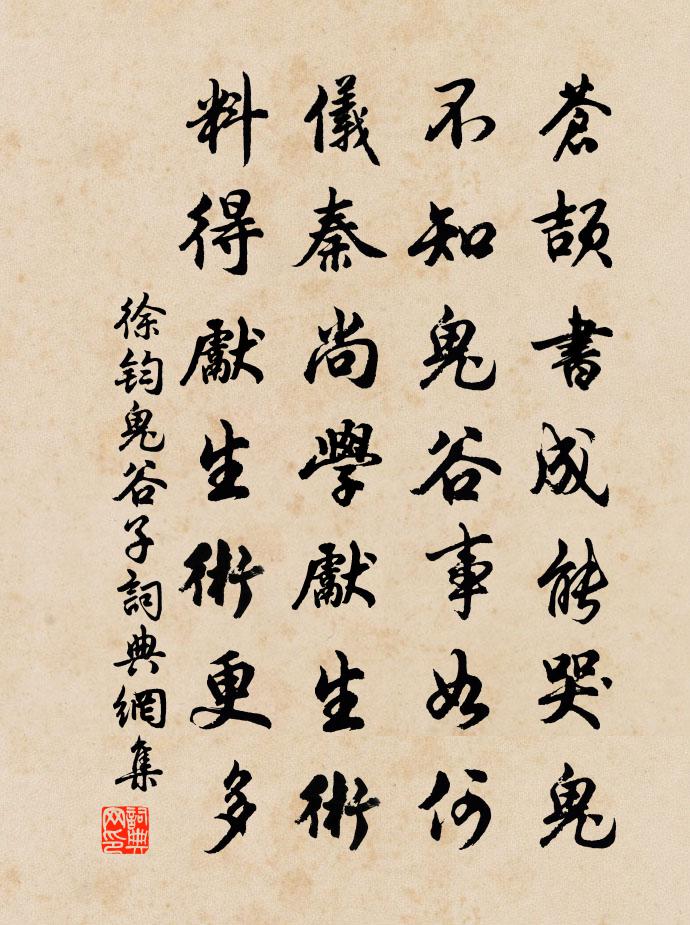 蒼頡書成能哭鬼
不知鬼谷事如何
儀秦尚學獻生術
料得獻生術更多
徐鈞鬼谷子詞典網集
詞典网印